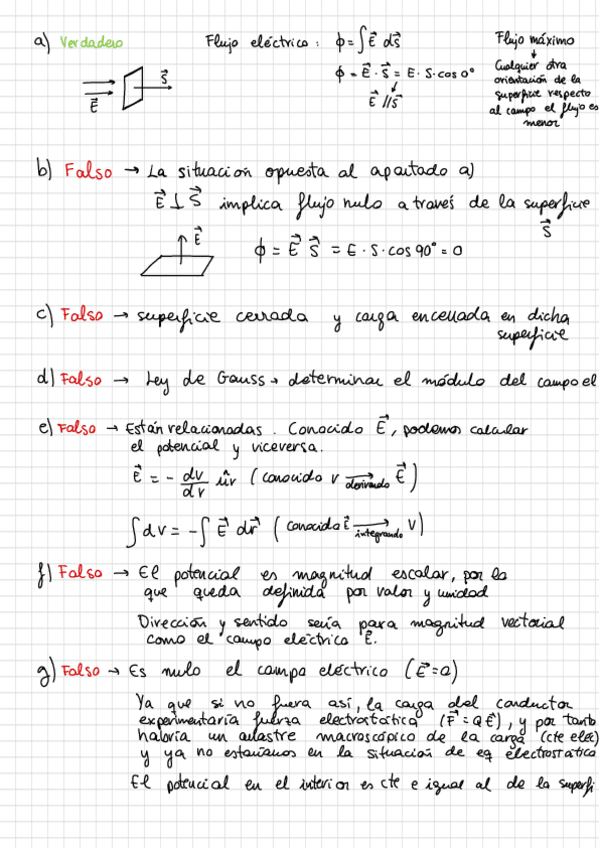 a) Verdadero Flujo eléctrico: ϕ = ∫ E⃗ dS⃗ Flujo máximo
ϕ = E⃗ · S⃗ = E · S · cos 0° Cualquier otra
E⃗ S⃗ E⃗ // S⃗ orientación de la
superficie respecto
al campo el flujo es
menor
b) Falso → La situación opuesta al apartado a)
E⃗ ⊥ S⃗ implica flujo nulo a través de la superficie
S⃗
E⃗ ϕ = E⃗ S⃗ = E · S · cos 90° = 0
c) Falso → superficie cerrada y carga encerrada en dicha
superficie
d) Falso → Ley de Gauss → determinar el módulo del campo el
e) Falso → Están relacionadas. Conocido E⃗, podemos calcular
el potencial y viceversa.
E⃗ = - dv/dr ûr (conocido V → derivando E⃗)
∫dv = -∫ E⃗ dr⃗ (conocido E⃗ → integrando V)
f) Falso → El potencial es magnitud escalar, por lo
que queda definida por valor y unidad
Dirección y sentido sería para magnitud vectorial
como el campo eléctrico E⃗.
g) Falso → Es nulo el campo eléctrico (E⃗=0)
Ya que si no fuera así, la carga del conductor
experimentaría fuerza electrostática (F⃗ = QE⃗), y por tanto
habría un arrastre macroscópico de la carga (cte eléc)
y ya no estaríamos en la situación de eq electrostática
El potencial en el interior es cte e igual al de la superfi